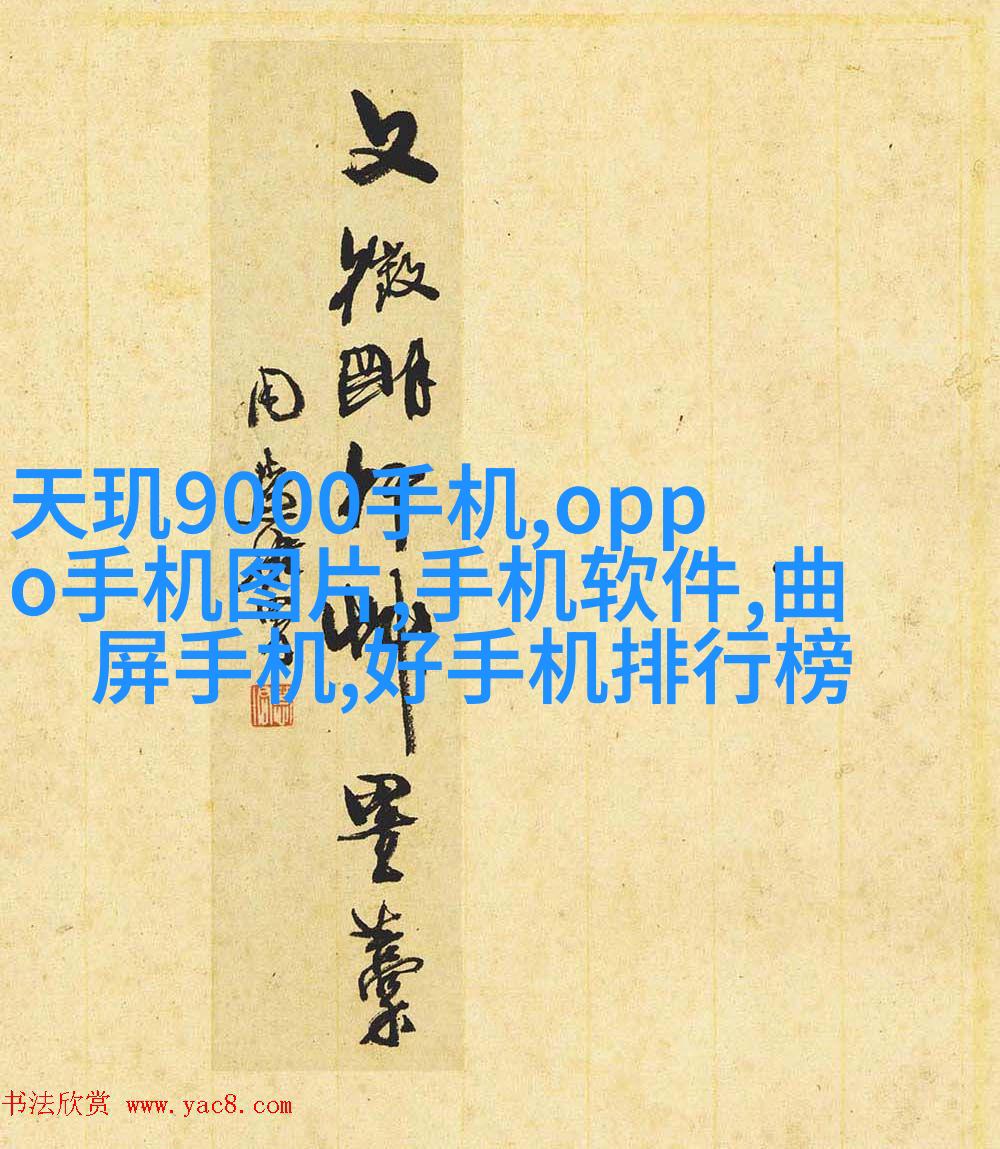 文徵明行草墨藁
天玑9000手机,opp
o手机图片,手机软件,曲
屏手机,好手机排行榜
书法欣赏 www.yac8.com